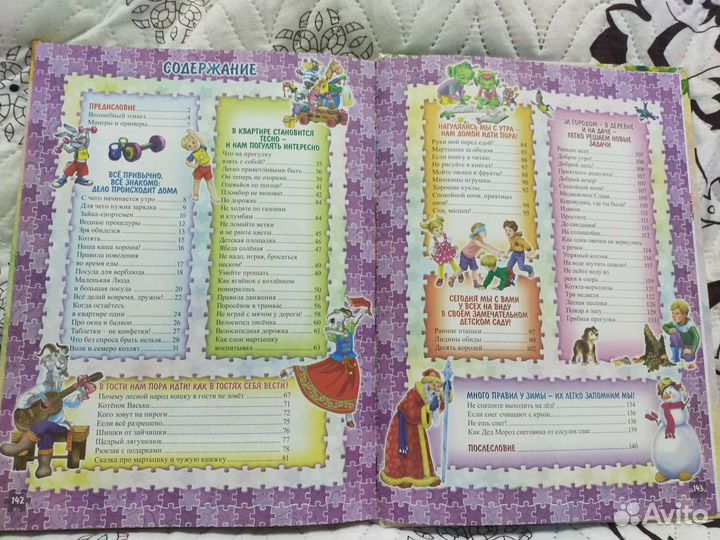 СОДЕРЖАНИЕ
ПРЕДИСЛОВИЕ
Волшебный этикет 4
Манеры и примеры 4
ВСЁ ПРИВЫЧНО,
ВСЁ ЗНАКОМО:
ДЕЛО ПРОИСХОДИТ ДОМА
С чего начинается утро 8
Для чего нужна зарядка
Зайка-спортсмен 10
Водные процедуры 12
Зря обиделся 13
Котята
Наша каша хороша!
Правила поведения
во время еды 17
Посуда для верблюда 18
Маленькая Люда
и большая посуда 20
Всё делай вовремя, дружок! 22
Когда остаёшься
в квартире один 24
Про окна и балкон 26
Таблетки – не конфетки! 27
Что без спроса брать нельзя 28
Волк и семеро козлят 31
В КВАРТИРЕ СТАНОВИТСЯ
ТЕСНО –
И НАМ ПОГУЛЯТЬ ИНТЕРЕСНО
Что на прогулку
взять с собой? 35
Легко приветливыми быть 36
Он теперь не озорник
Одевайся по погоде! 41
Пломбир не виноват
По дорожке 44
Не ходите по газонам
и клумбам 44
Не ломайте ветки
и не рвите цветы 45
Детская площадка 46
Ябеда солёная 47
Не надо, играя, бросаться
песком! 49
Умейте прощать 50
Как ягнёнок с козлёнком
помирились 50
Правила движения 53
Поросёнок в трамвае
Не играй с мячом у дороги!
Велосипед для бегемота
Велосипедная дорожка 61
Как слон мартышку
воспитывал 63
В ГОСТИ НАМ ПОРА ИДТИ! КАК В ГОСТЯХ СЕБЯ ВЕСТИ?
Почему лесной народ кошку в гости не зовёт 67
Котёнок Васька 71
Кого зовут на пироги 72
Если всё разрешено 75
Шишки от зайчишки 76
Щедрый лягушонок 77
Рюкзак с подарками 78
Сказка про мартышку и чужую книжку 81
142
НАГУЛЯЛИСЬ МЫ С УТРА –
НАМ ДОМОЙ ИДТИ ПОРА!
Руки мой перед едой! 84
Мартышка за обедом 85
Если книгу я читаю
Не рисуйте в книгах!
Мойте овощи и фрукты!
Мишкины игрушки
Хорошие куклы
Спокойной ночи, приятных
снов! 94
Спи, малыш! 95
СЕГОДНЯ МЫ С ВАМИ
У ВСЕХ НА ВИДУ
В СВОЁМ ЗАМЕЧАТЕЛЬНОМ
ДЕТСКОМ САДУ!
Ранние пташки 97
Льдины обиды 99
Десять королей 102
ЗА ГОРОДОМ – В ДЕРЕВНЕ
И НА ДАЧЕ –
ЛЕГКО РЕШАЕМ НОВЫЕ
ЗАДАЧИ
Раньше всех 105
Доброе утро! 105
Добрый день!
Приятного аппетита!
Добрый вечер!
Спокойной ночи!
Медвежонок Слава
Коровушка, где ты была?
Извини
Простите
До свидания!
На солнцепёке
Как один овечек не вернулись
с речки
Упрямый козлик
На воде шутить опасно!
Не пейте воду из
реки и озера
Котята-верхолазы
Три медведя
Лесная песенка
Пожар в лесу
Грибная прогулка
МНОГО ПРАВИЛ У ЗИМЫ – ИХ ЛЕГКО ЗАПОМНИМ МЫ!
Не спешите выходить на лёд! 134
Если снег счищают с крыш
Не ешь снег!
Как Дед Мороз снеговика от сосулек спас 139
ПОСЛЕСЛОВИЕ 140
143
Avito